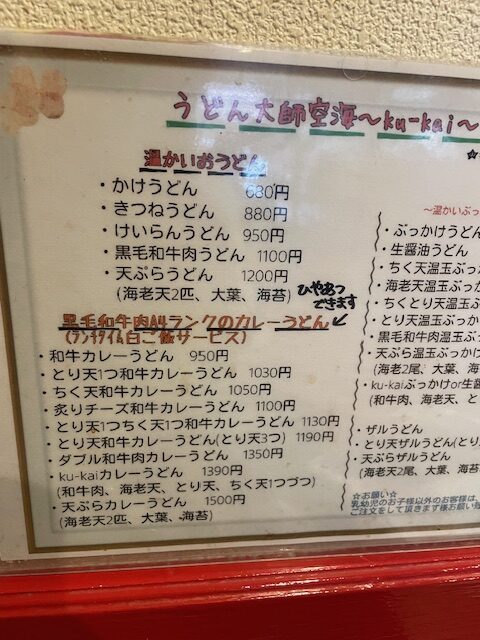 うどん大師空海～ku-kai～
温かいおうどん
・かけうどん 680円
・きつねうどん 880円
・けいらんうどん 950円
・黒毛和牛肉うどん 1100円
・天ぷらうどん 1200円
(海老天2匹、大葉、海苔)
ひやあつ
できます
黒毛和牛肉A4ランクのカレーうどん
(ランチタイム白ご飯サービス)
・和牛カレーうどん 950円
・とり天1つ和牛カレーうどん 1030円
・ちく天和牛カレーうどん 1050円
・炙りチーズ和牛カレーうどん 1100円
・とり天1つちく天1つ和牛カレーうどん 1130円
・とり天和牛カレーうどん(とり天3つ) 1190円
・ダブル和牛肉カレーうどん 1350円
・ku-kaiカレーうどん 1390円
(和牛肉、海老天、とり天、ちく天1つづつ)
・天ぷらカレーうどん 1500円
(海老天2匹、大葉、海苔)
～温かいぶっ
・ぶっかけうどん
・生醤油うどん
・ちく天温玉ぶっか
・海老天温玉ぶっか
・ちくとり天温玉ぶっ
・とり天温玉ぶっか
・黒毛和牛肉温玉ぶっ
・天ぷら温玉ぶっか
(海老2尾、大葉、海
・ku-kaiぶっかけor生醤
(和牛肉、海老天、と
・ザルうどん
・とり天ザルうどん(とり
・天ぷらザルうどん
(海老天2尾、大葉、海苔
☆お願い☆
乳幼児のお子様以外のお客様は、
ご注文をして頂きます様お願い致